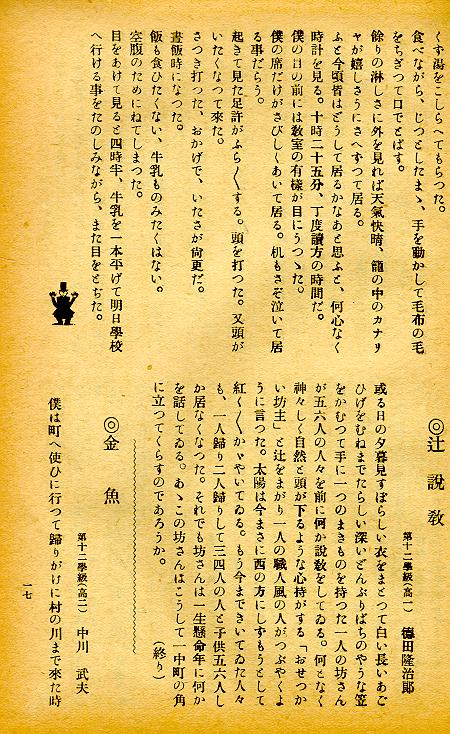 くず湯をこしらへてもらつた。
食べながら、じつとしたまゝ、手を動かして毛布の毛
をちぎつて口でとばす。
餘りの淋しさに外を見れば天氣快晴、籠の中のカナリ
ヤが嬉しさうにさへずつて居る。
ふと今頃皆はどうして居るかなあと思ふと、何心なく
時計を見る。十時二十五分、丁度讀方の時間だ。
僕の目の前には敎室の有樣が目にうつゝた。
僕の席だけがさびしくあいて居る。机もさぞ泣いて居
る事だらう。
起きて見た足許がふら〱する。頭を打つた。又頭が
いたくなつて來た。
さつき打つた、おかげで、いたさが尙更だ。
晝飯時になつた。
飯も食ひたくない、牛乳ものみたくはない。
空腹のためにねてしまつた。
目をあけて見ると四時半、牛乳を一本平げて明日學校
へ行ける事をたのしみながら、また目をとぢた。
◎辻說敎
第十二學級(高一) 德田隆治郞
或る日の夕暮見すぼらしい衣をまとつて白い長いあご
ひげをむねまでたらしい深いどんぶりばちのやうな笠
をかむつて手に一つのまきものを持つた一人の坊さん
が五六人の人々を前に何か說敎をしてゐる。何となく
神々しく自然と頭が下るような心持がする「おせつか
い坊主」と辻をまがり一人の職人風の人がつぶやくよ
うに言つた。太陽は今まさに西の方にしずもうとして
紅く〱かゞやいてゐる。もう今まできいてゐた人々
も、一人歸り二人歸りして三四人の人と子供五六人し
か居なくなつた。それでも坊さんは一生懸命年に何か
を話してゐる。あゝこの坊さんはこうして一中町の角
に立つてくらすのであろうか。
(終り)
◎金魚
第十二學級(高二) 中川武夫
僕は町へ使ひに行つて歸りがけに村の川まで來た時
一七